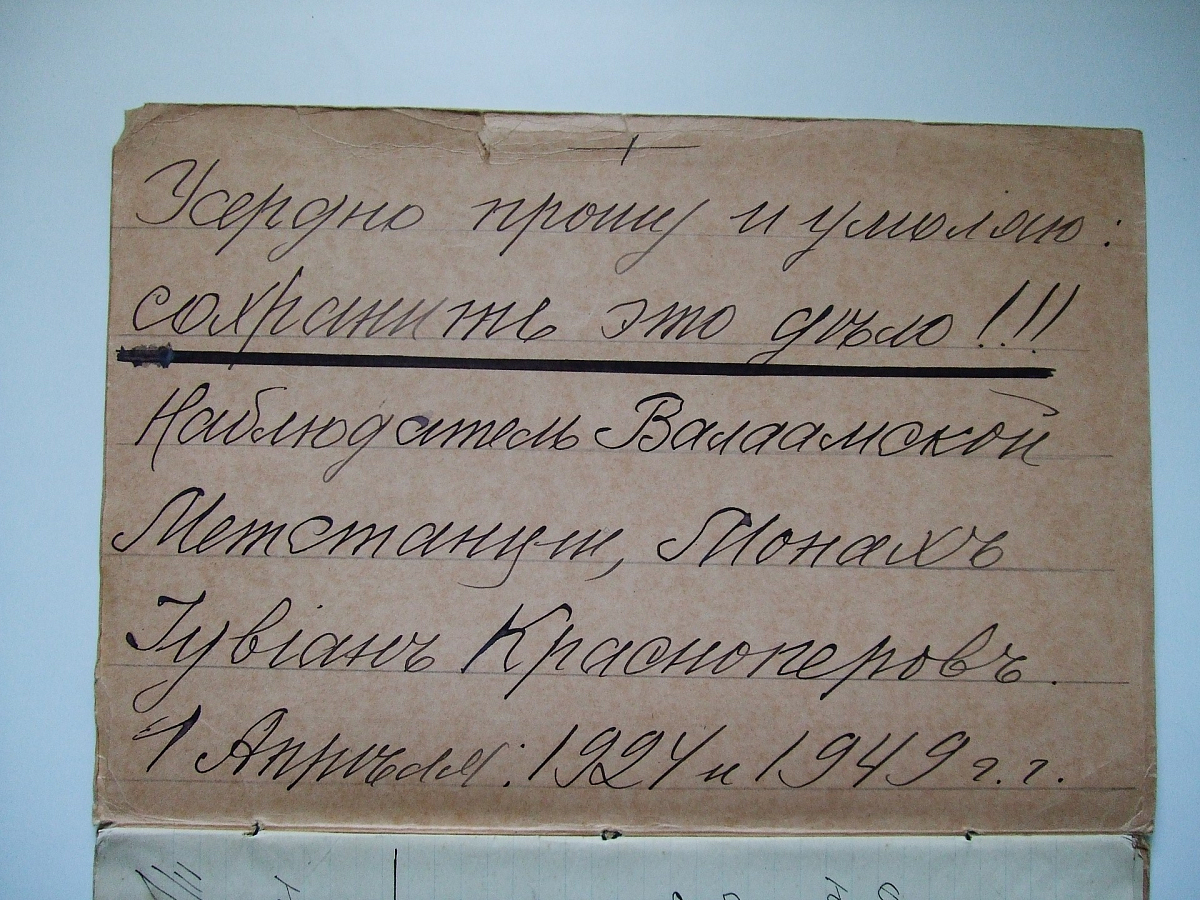 Усердно прошу и умоляю:
сохраните это дѣло!!!
Наблюдатель Валаамской
Метстанции, Монахъ
Iувiанъ Красноперовъ.
1 Апрѣля: 1924 и 1949 г.г.